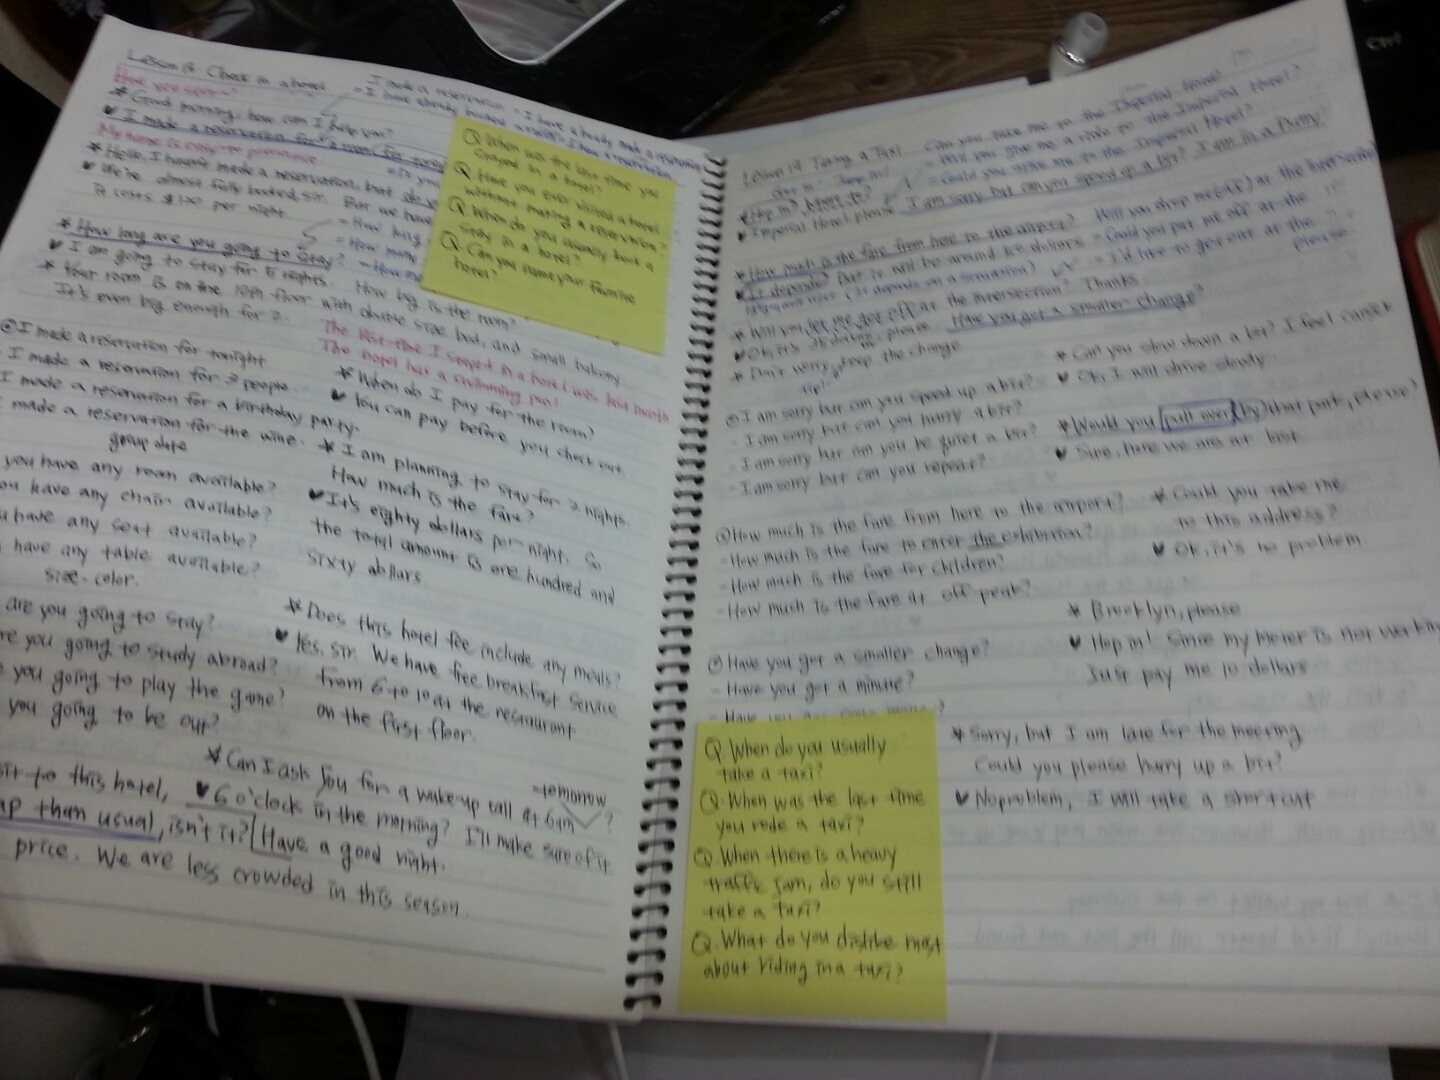 Lesson 18. Check in a hotel
Have you seen?
* Good morning, how can I help you?
♥ I made a reservation for a room for
My name is easy to pronounce
* Hello, I haven't made a reservation, but do
♥ We're almost fully booked, sir. But we have
It costs $120 per night.
* How long are you going to stay?
♥ I am going to stay for 5 nights. How big is the room?
* Your room is on the 10th floor with double size bed, and small balcony
It's even big enough for 2.
I made a reservation
- I have already booked a room
= I have already made a reservation
= I have a reservation
- How long
= How many
= How
Q. When was the last time you
stayed in a hotel?
Q. Have you ever visited a hotel
without making a reservation?
Q. When do you usually book a
stay in a hotel?
Q. Can you name your favorite
hotel?
The last time I stayed in a hotel was last month
The hotel has a swimming pool
I made a reservation for tonight
- I made a reservation for 3 people
I made a reservation for a birthday party.
made a reservation for the wine.
group date
you have any room available?
have any chair available?
have any seat available?
have any table available?
size. color.
are you going to stay?
you going to study abroad?
you going to play the game?
you going to be out?
* When do I pay for the room?
♥ You can pay before you check out.
* I am planning to stay for 2 nights.
How much is the fare?
♥ It's eighty dollars per night. So
the total amount is one hundred and
sixty dollars.
* Does this hotel fee include any meals?
♥ Yes, sir. We have free breakfast service
from 6 to 10 at the restaurant
on the first floor.
* Can I ask you for a wake-up call at 6am tomorrow?
♥ 6 o'clock in the morning? I'll make sure of it
Have a good night.
to this hotel,
than usual, isn't it?
price. We are less crowded in this season.
Lesson 19 Taking a Taxi
Can you take me to the Imperial Hotel?
- Will you give me a ride to the Imperial Hotel?
- Could you take me to the Imperial Hotel?
* Hop in? Where to?
♥ Imperial Hotel, please. I am sorry, but can you speed up a bit? I am in a hurry
* How much is the fare from here to the airport?
♥ It depends. But it will be around 50 dollars
(It depends on a situation)
Will you drop me (off) at the intersection
= Could you put me off at the
= I'd like to get out at the
please
* Will you let me get off at the intersection? Thanks.
♥ Ok, it's 28 dollars, please. Have you got a smaller change?
* Don't worry, keep the change
tip!
I am sorry but can you speed up a bit?
- I am sorry but can you hurry a bit?
- I am sorry but can you be quiet a bit?
- I am sorry but can you repeat?
How much is the fare from here to the airport?
- How much is the fare to enter the exhibition?
- How much is the fare for children?
- How much is the fare at off peak?
Have you got a smaller change?
- Have you got a minute?
- Have you got some money?
* Can you slow down a bit? I feel carsick
♥ Ok, I will drive slowly
* Would you pull over (by) that park, please?
♥ Sure, here we are at last
* Could you take me
to this address?
♥ Ok, it's no problem
* Brooklyn, please
♥ Hop in! Since my meter is not working
Just pay me 10 dollars
* Sorry, but I am late for the meeting
Could you please hurry up a bit?
♥ No problem, I will take a shortcut
Q. When do you usually
take a taxi?
Q. When was the last time
you rode a taxi?
Q. When there is a heavy
traffic jam, do you still
take a taxi?
Q. What do you dislike most
about riding in a taxi?
Ctrl